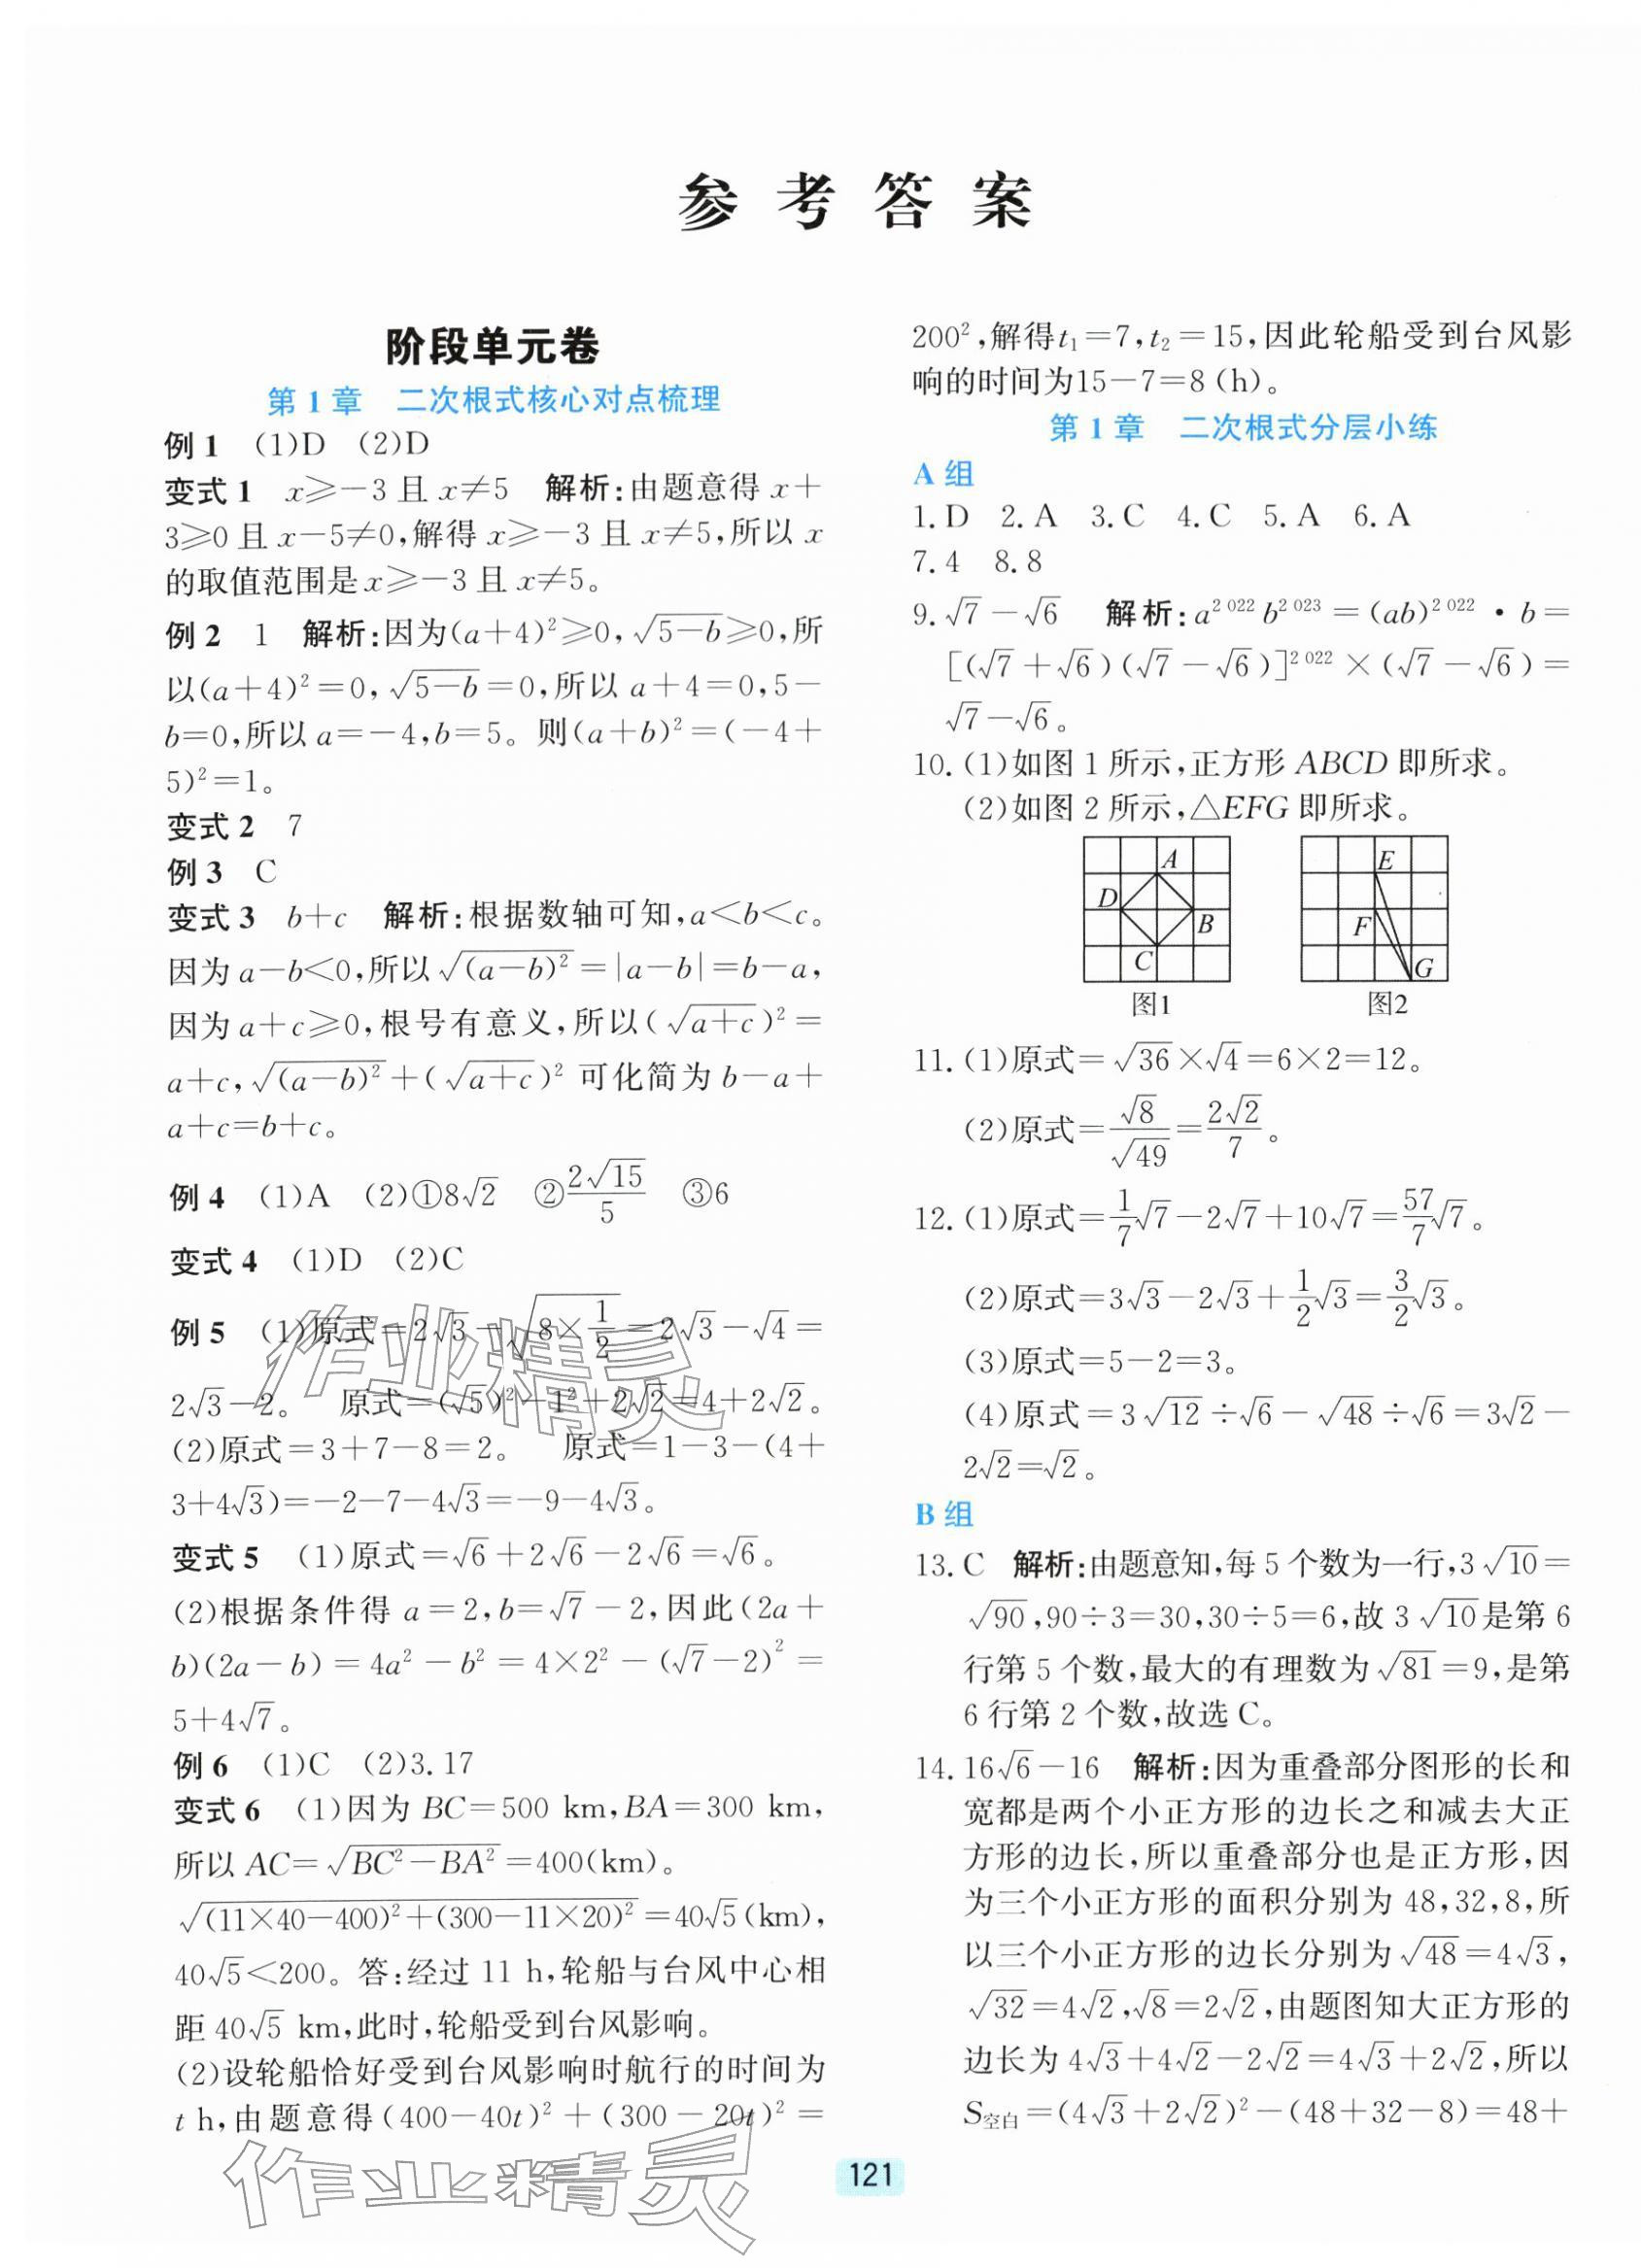 参考答案
阶段单元卷
第1章 二次根式核心对点梳理
例1 (1)D (2)D
变式1 x≥-3且x≠5 解析:由题意得x+
3≥0且x-5≠0,解得x≥-3且x≠5,所以x
的取值范围是x≥-3且x≠5。
例2 1 解析:因为(a+4)²≥0,√(5-b)≥0,所
以(a+4)²=0,√(5-b)=0,所以a+4=0,5-
b=0,所以a=-4,b=5。则(a+b)²=(-4+
5)²=1。
变式2 7
例3 C
变式3 b+c 解析:根据数轴可知,a<b<c。
因为a-b<0,所以√((a-b)²)=|a-b|=b-a,
因为a+c≥0,根号有意义,所以(√(a+c))²=
a+c,√((a-b)²)+(√(a+c))²可化简为b-a+
a+c=b+c。
例4 (1)A (2)①8√2 ②2√15/5 ③6
变式4 (1)D (2)C
例5 (1)原式=2√3-√(8×1/2)=2√3-√4=
2√3-2。 原式=(√5)²-1²+2√2=4+2√2。
(2)原式=3+7-8=2。 原式=1-3-(4+
3+4√3)=-2-7-4√3=-9-4√3。
变式5 (1)原式=√6+2√6-2√6=√6。
(2)根据条件得a=2,b=√7-2,因此(2a+
b)(2a-b)=4a²-b²=4×2²-(√7-2)²=
5+4√7。
例6 (1)C (2)3.17
变式6 (1)因为BC=500 km,BA=300 km,
所以AC=√(BC²-BA²)=400(km)。
√((11×40-400)²+(300-11×20)²)=40√5(km),
40√5<200。答:经过11 h,轮船与台风中心相
距40√5 km,此时,轮船受到台风影响。
(2)设轮船恰好受到台风影响时航行的时间为
t h,由题意得(400-40t)²+(300-20t)²=
200²,解得t₁=7,t₂=15,因此轮船受到台风影
响的时间为15-7=8(h)。
第1章 二次根式分层小练
A组
1.D 2.A 3.C 4.C 5.A 6.A
7.4 8.8
9.√7-√6 解析:a²⁰²²b²⁰²³=(ab)²⁰²²•b=
[(√7+√6)(√7-√6)]²⁰²²×(√7-√6)=
√7-√6。
10.(1)如图1所示,正方形ABCD即所求。
(2)如图2所示,△EFG即所求。
A
D
B
C
图1
E
F
G
图2
11.(1)原式=√36×√4=6×2=12。
(2)原式=√8/√49=2√2/7。
12.(1)原式=1/7√7-2√7+10√7=57/7√7。
(2)原式=3√3-2√3+1/2√3=3/2√3。
(3)原式=5-2=3。
(4)原式=3√12÷√6-√48÷√6=3√2-
2√2=√2。
B组
13.C 解析:由题意知,每5个数为一行,3√10=
√90,90÷3=30,30÷5=6,故3√10是第6
行第5个数,最大的有理数为√81=9,是第
6行第2个数,故选C。
14.16√6-16 解析:因为重叠部分图形的长和
宽都是两个小正方形的边长之和减去大正
方形的边长,所以重叠部分也是正方形,因
为三个小正方形的面积分别为48,32,8,所
以三个小正方形的边长分别为√48=4√3,
√32=4√2,√8=2√2,由题图知大正方形的
边长为4√3+4√2-2√2=4√3+2√2,所以
S空白=(4√3+2√2)²-(48+32-8)=48+
121
作业精灵
作业精灵